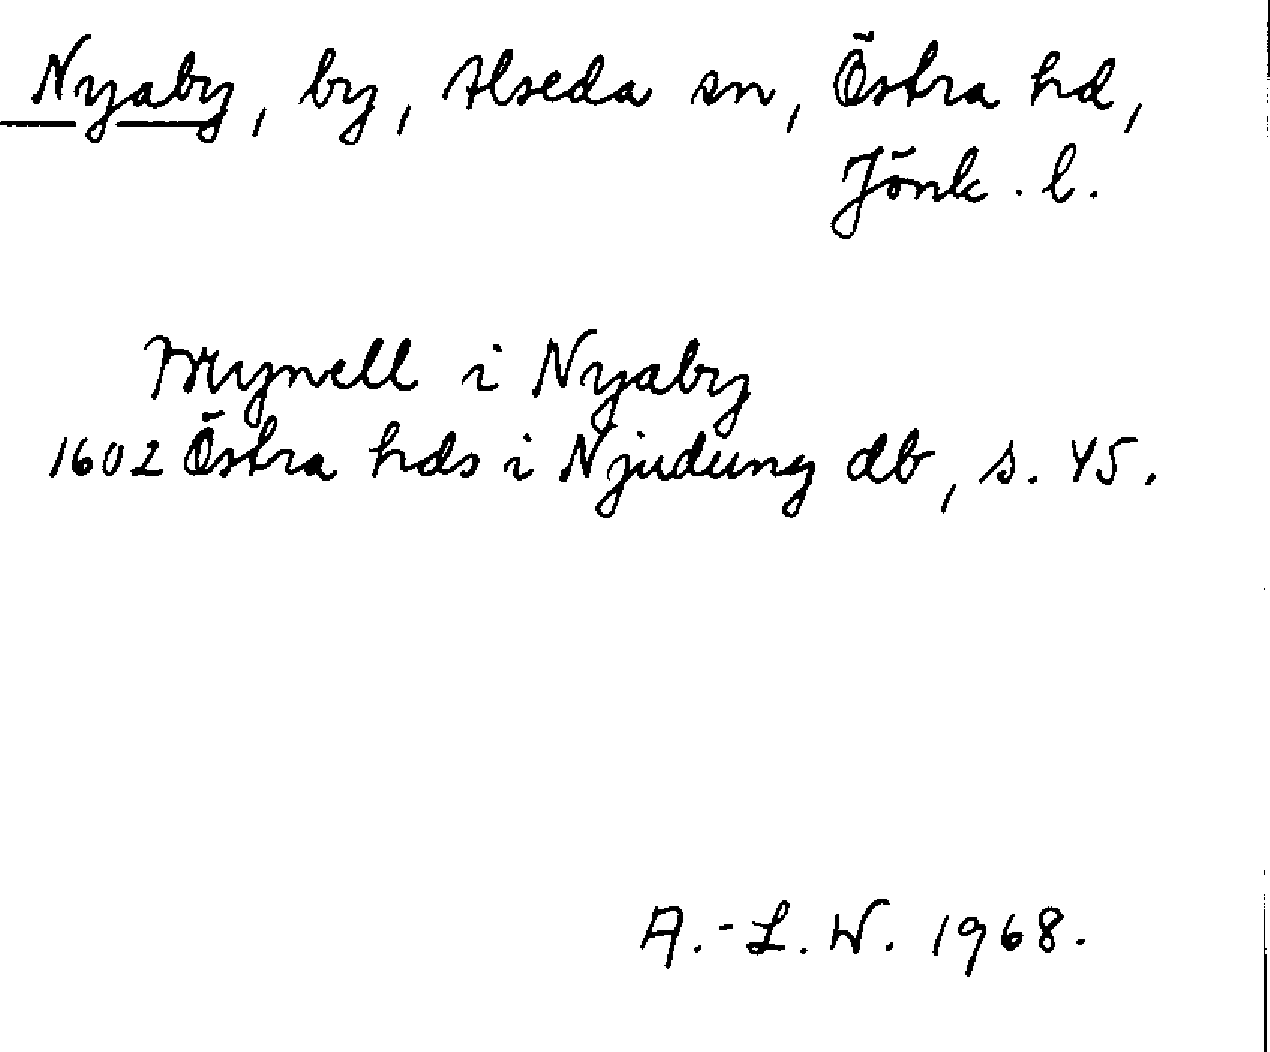 Nyaby, by, Alseda sn, Östra hd,
Jönk. l.
Brynell i Nyaby
1602 Östra hds i Njudung db, s. 45.
A.-L. W. 1968.